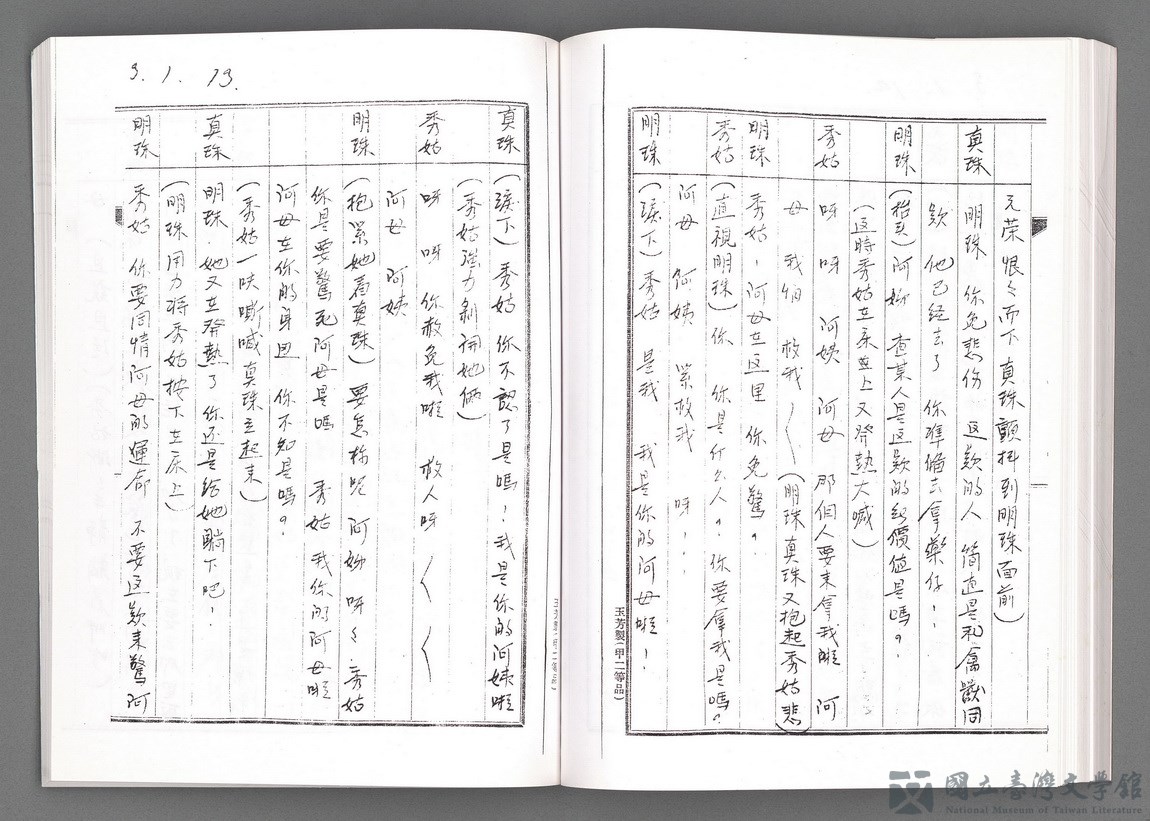 元荣恨々而下 真珠顫抖到明珠面前)
真珠 明珠 你免悲伤 这款的人 简直是和禽獸同
款 他已经去了 你準備去拿藥仔!
明珠 (抬头)阿妙 查某人是這款的無價值是嗎?
(這時秀姑在床並上又発熱大喊)
秀姑 呀 呀 阿姨 阿母 那個人要来拿我啦 阿
母 我怕 救我 (明珠真珠又抱起秀姑悲)
明珠 秀姑,阿母在这里 你免驚。
秀姑 (直視明珠)你 你是什么人?你要拿我是嗎?
阿母 阿姨 緊救我 呀..
明珠 (淚下)秀姑 是我 我是你的阿母啦!
玉芳製(甲二等品)
3.1.13.
真珠 (淚下)秀姑 你不認了是嗎!我是你的阿姨啦
(秀姑强力剝開她俩)
秀姑 呀 呀 你赦免我啦 救人呀
阿母 阿姨
明珠 (抱緊她看真珠)要怎樣呢 阿妙呀々.秀姑
你是要驚死阿母是嗎 秀姑 我你的阿母啦
阿母在你的身边 你不知是嗎?
(秀姑一味嘶喊真珠立起来)
真珠 明珠.她又在発熱了 你还是给她躺下吧!
(明珠用力将秀姑按下在床上)
明珠 秀姑 你要同情阿母的運命 不要這款来驚阿
玉芳製(甲二等品)
國立臺灣文學館
National Museum of Taiwan Literature